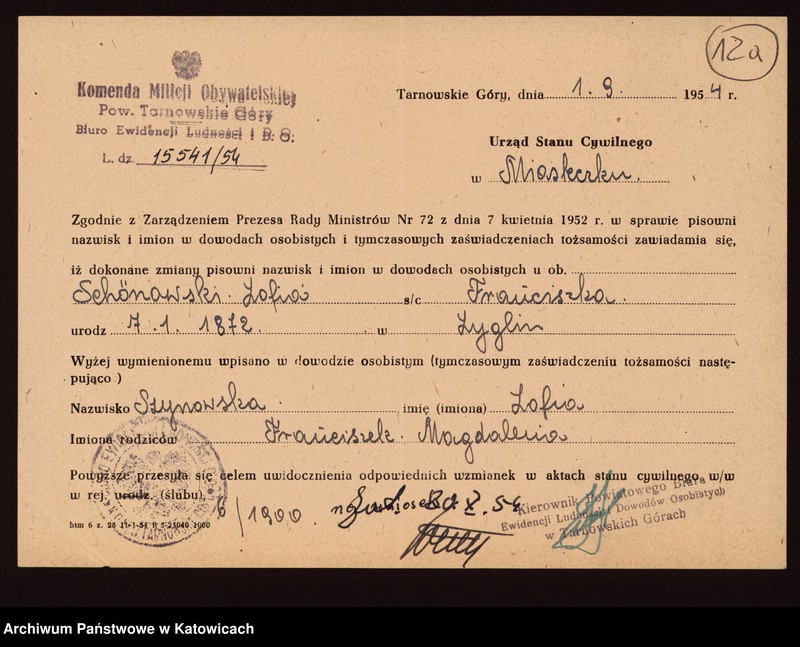 12a
Komenda Milicji Obywatelskiej
Pow. Tarnowskie Góry
Biuro Ewidencji Ludności i D. O.
L. dz. 15541/54
Tarnowskie Góry, dnia 1. 9. 1954 r.
Urząd Stanu Cywilnego
w Miasteczku.
Zgodnie z Zarządzeniem Prezesa Rady Ministrów Nr 72 z dnia 7 kwietnia 1952 r. w sprawie pisowni
nazwisk i imion w dowodach osobistych i tymczasowych zaświadczeniach tożsamości zawiadamia się,
iż dokonane zmiany pisowni nazwisk i imion w dowodach osobistych u ob.
Schönawski Zofia s/c Franciszka.
urodz 7. 1. 1872. w Zyglin
Wyżej wymienionemu wpisano w dowodzie osobistym (tymczasowym zaświadczeniu tożsamości nastę-
pująco )
Nazwisko Szynowska. imię (imiona) Zofia
Imiona rodziców Franciszek. Magdalena
Powyższe przesyła się celem uwidocznienia odpowiednich wzmianek w aktach stanu cywilnego w/w
w rej. urodz. (ślubu), 6/1900
X. 54
Kierownik Powiatowego Biura
Ewidencji Ludności i Dowodów Osobistych
w Tarnowskich Górach
Archiwum Państwowe w Katowicach